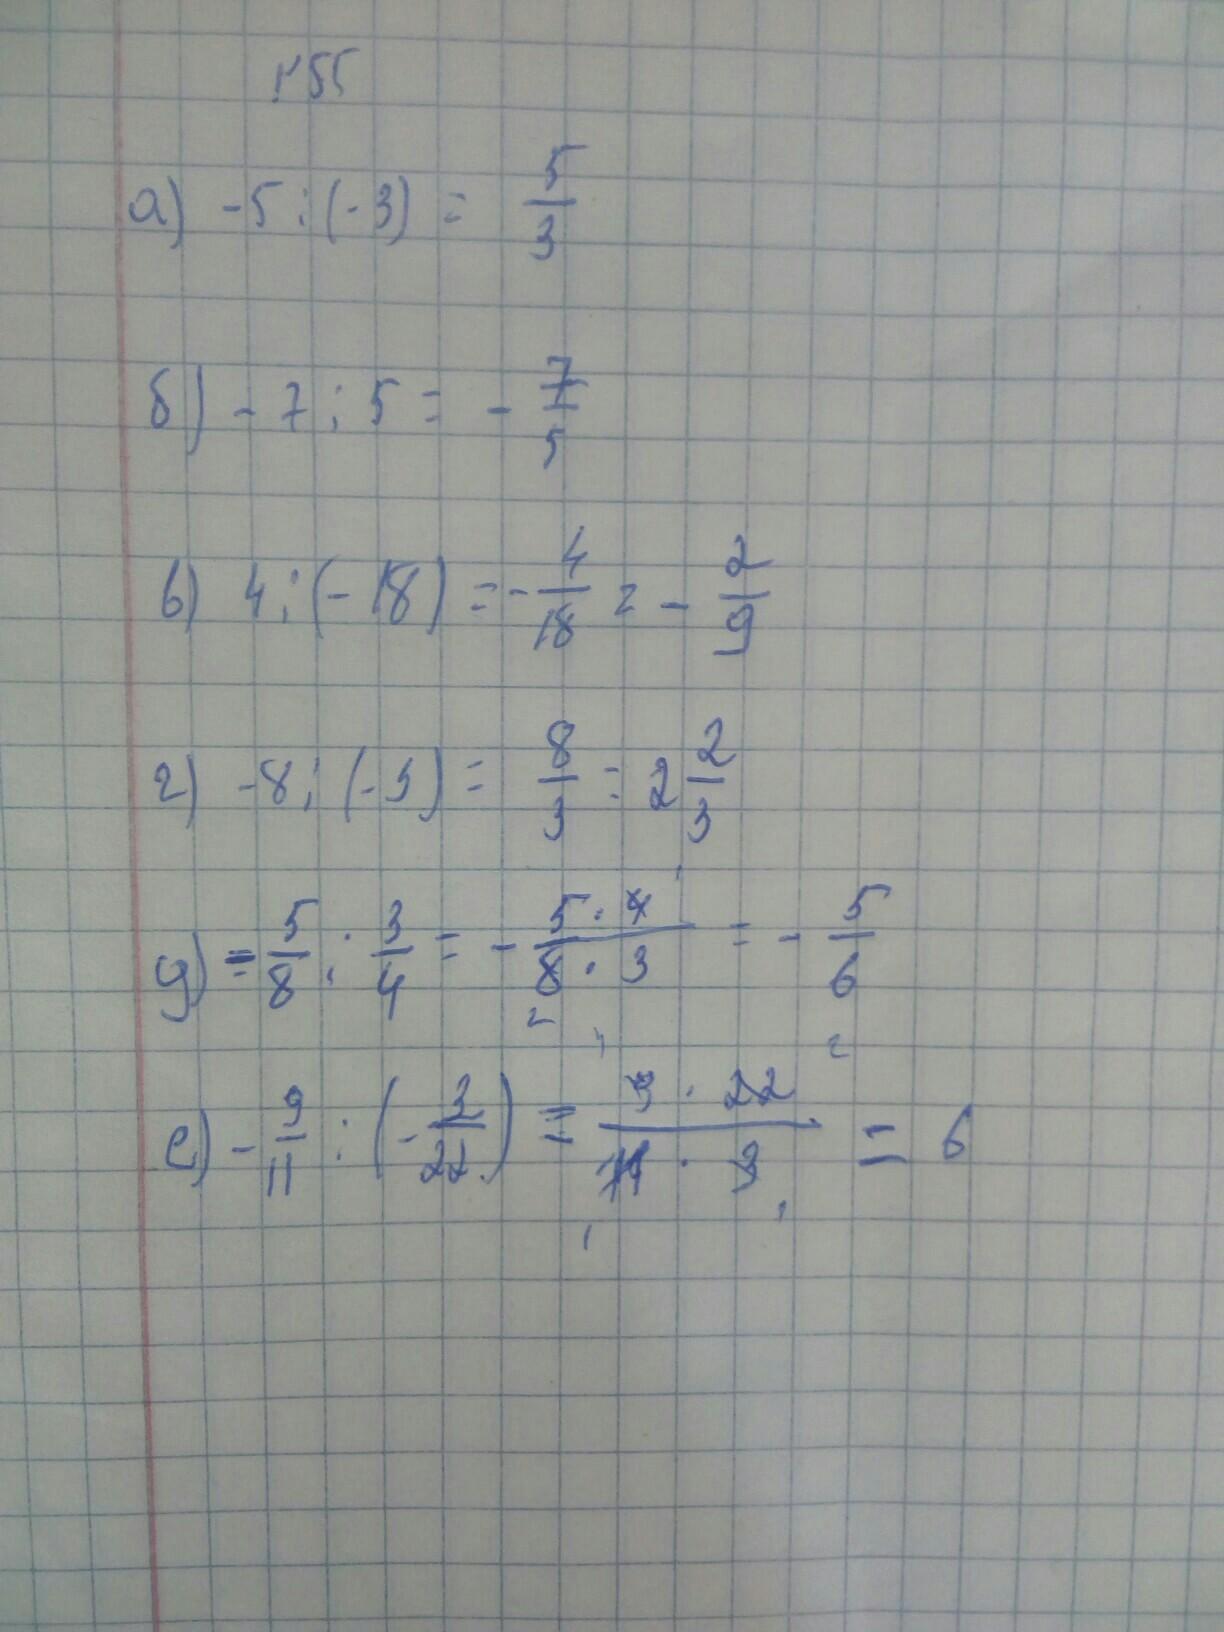 №55
а) -5 : (-3) = 5/3
б) - 7 : 5 = - 7/5
в) 4 : (-18) = - 4/18 = - 2/9
г) -8 : (-3) = 8/3 = 2 2/3
д) - 5/8 : 3/4 = - (5 · 4)/(8 · 3) = - 5/6
е) - 9/11 : (- 3/22) = (9 · 22)/(11 · 3) = 6